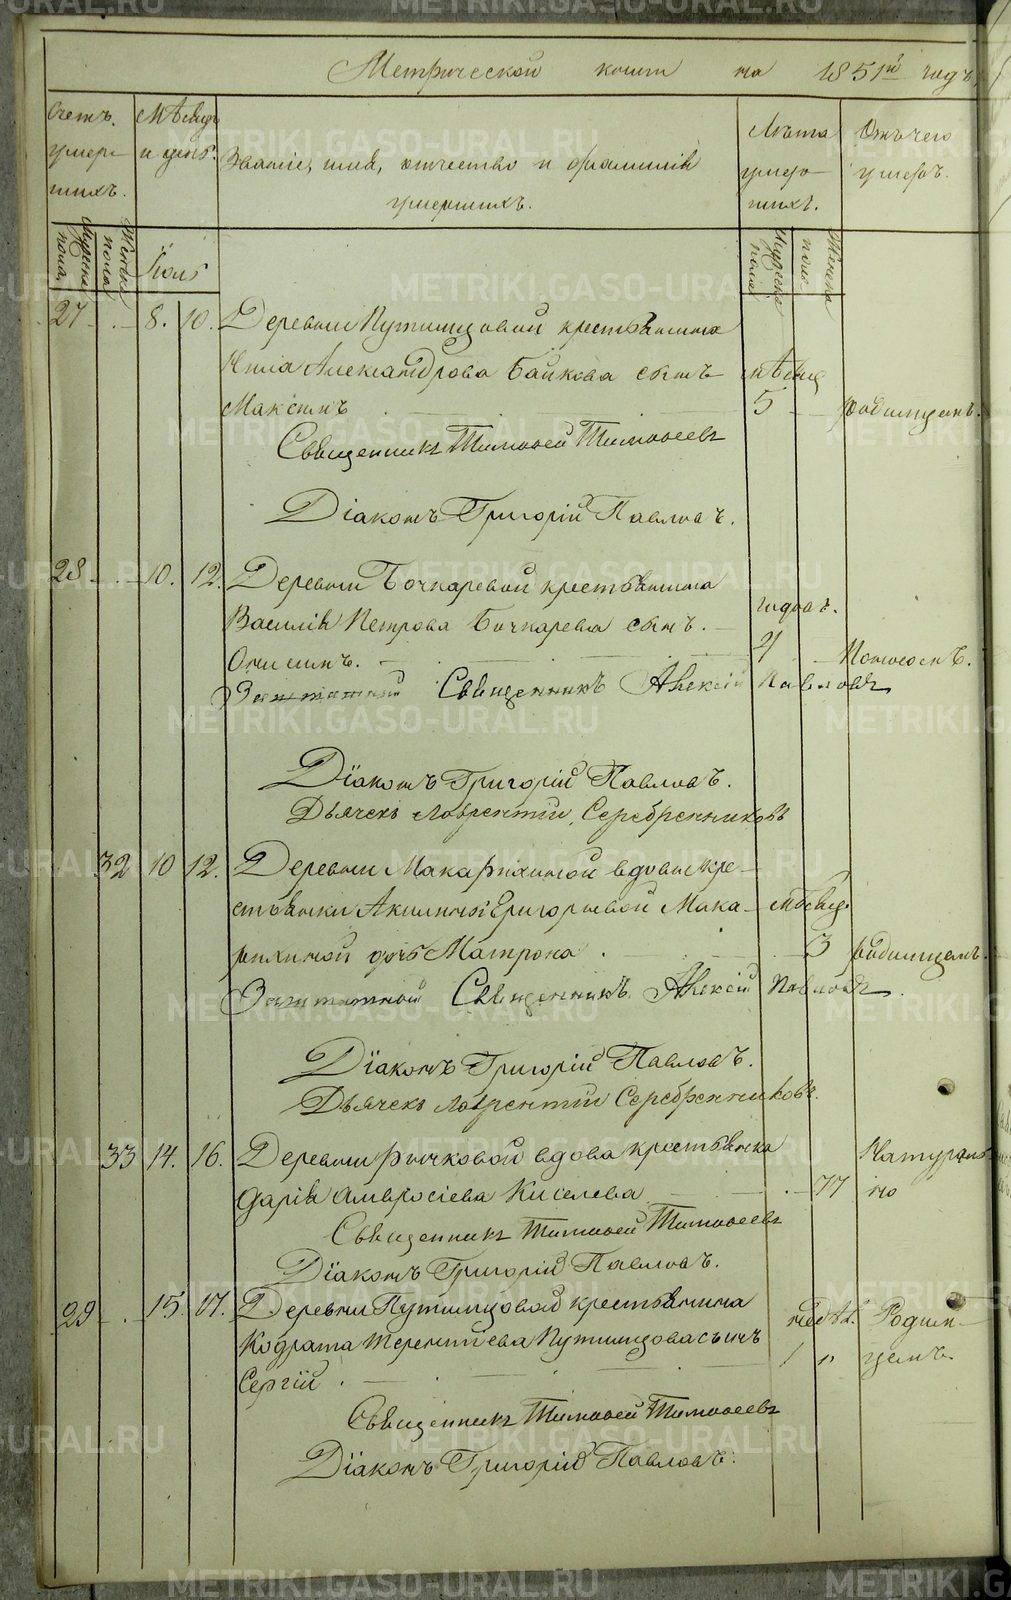 Метрической книги на 1851й годъ
Счетъ умер- шихъ.
Мѣсяцъ и день.
Званіе, имя, отчество и фамилія умершихъ.
Лѣта умер- шихъ.
Отъ чего умеръ.
Мужеска пола
Женска пола
Іюль
Мужеска пола
Женска пола
27 8. 10. Деревни Путимцовой крестьянина
Нила Александрова Байкова сынъ мѣсяц
Максимъ 5 родимцемъ.
Священникъ Тимофей Тимофеевъ
Діаконъ Григорій Павловъ.
28 10. 12. Деревни Бочкаревой крестьянина
годовъ.
Василія Петрова Бочкарева сынъ.
Онисимъ. 4 Поносомъ.
Заштатный Священникъ Алексій Павловъ
Діаконъ Григорій Павловъ.
Дьячекъ Лаврентій Серебренниковъ
32 10 12. Деревни Макарихиной вдовы кре-
стьянки Акилины Григорьевой Мака- мѣсяц.
рихиной дочь Матрона 3 родимцемъ.
Заштатной Священникъ Алексій Павловъ.
Діаконъ Григорій Павловъ.
Дьячекъ Лаврентій Серебренниковъ.
33 14. 16. Деревни Рычковой вдова крестьянка Натураль-
Дарія Амвросіева Киселева 77 но
Священникъ Тимофей Тимофеевъ
Діаконъ Григорій Павловъ.
29 15. 17. Деревни Путимцовой крестьянина недѣл. Родим-
Кодрата Терентіева Путимцова сынъ 1 цемъ.
Сергій
Священникъ Тимофей Тимофеевъ
Діаконъ Григорій Павловъ.
METRIKI.GASO-URAL.RU